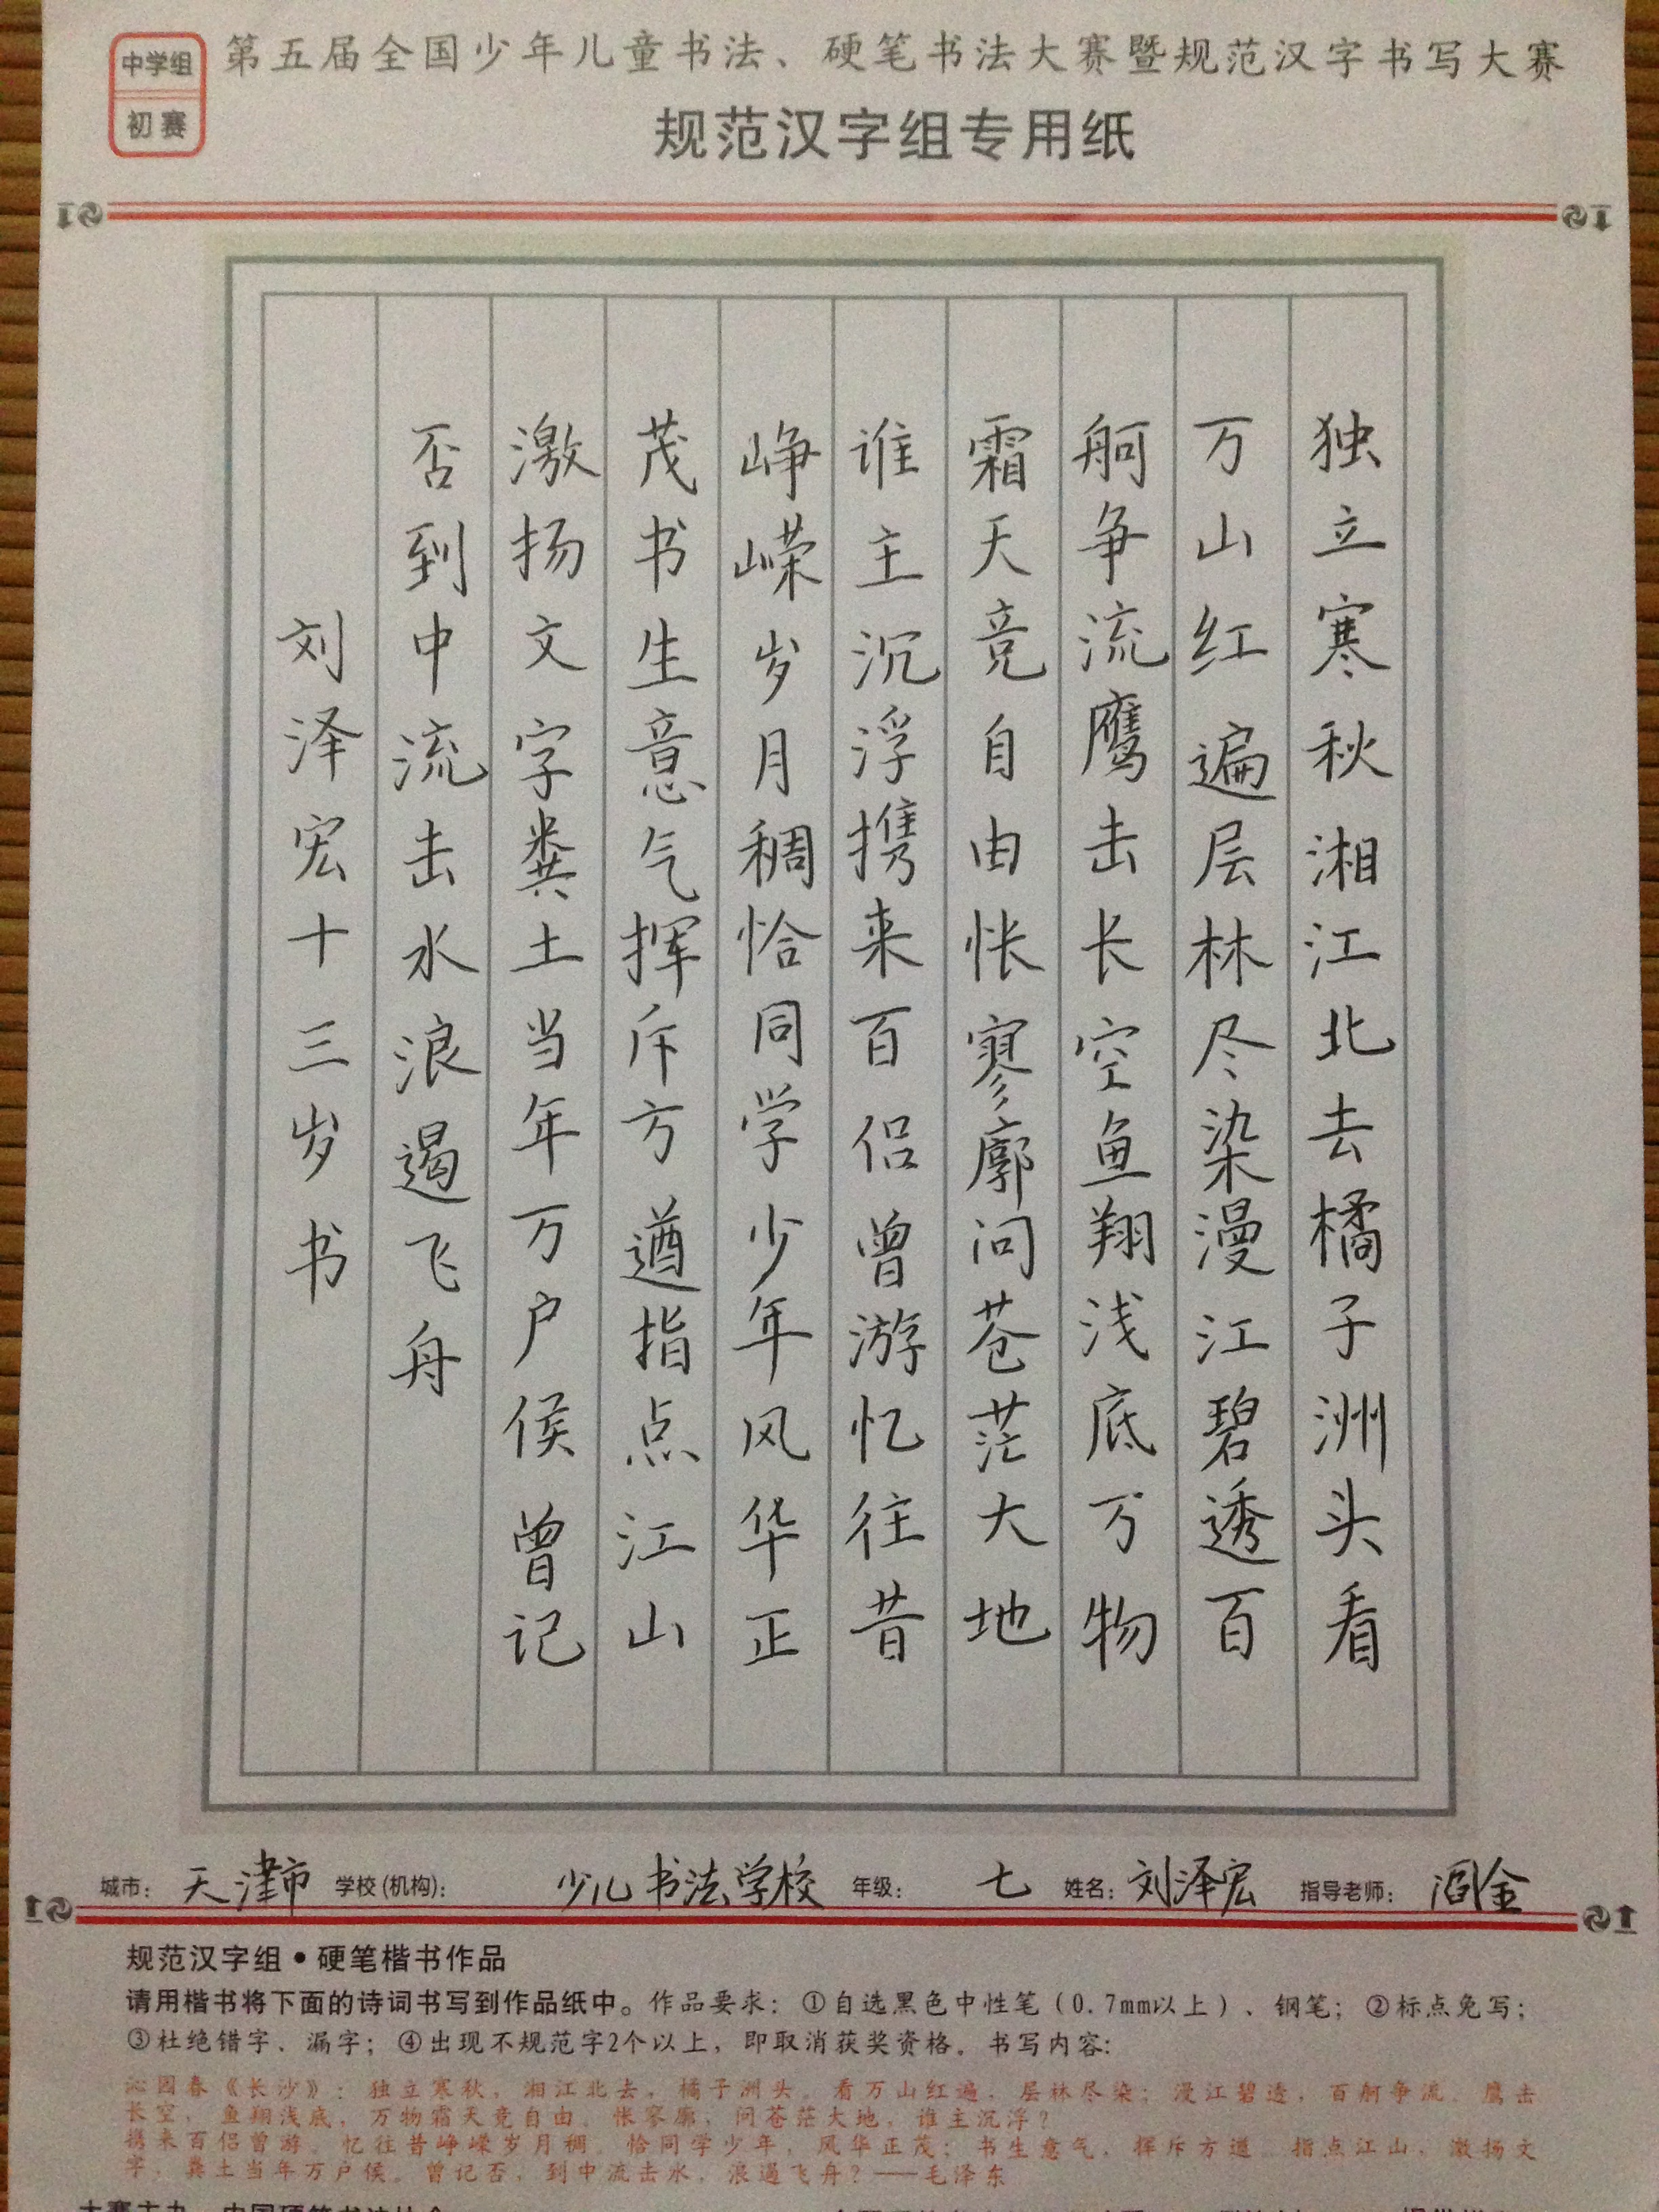 中学组
初赛
第五届全国少年儿童书法、硬笔书法大赛暨规范汉字书写大赛
规范汉字组专用纸
独立寒秋湘江北去橘子洲头看
万山红遍层林尽染漫江碧透百
舸争流鹰击长空鱼翔浅底万物
霜天竞自由怅寥廓问苍茫大地
谁主沉浮携来百侣曾游忆往昔
峥嵘岁月稠恰同学少年风华正
茂书生意气挥斥方遒指点江山
激扬文字粪土当年万户侯曾记
否到中流击水浪遏飞舟
刘泽宏十三岁书
城市：天津市 学校(机构)：少儿书法学校 年级：七 姓名：刘泽宏 指导老师：阎金
规范汉字组•硬笔楷书作品
请用楷书将下面的诗词书写到作品纸中。作品要求：①自选黑色中性笔（0.7mm以上）、钢笔；②标点免写；
③杜绝错字、漏字；④出现不规范字2个以上，即取消获奖资格。书写内容:
沁园春《长沙》：独立寒秋，湘江北去，橘子洲头。看万山红遍，层林尽染；漫江碧透，百舸争流。鹰击
长空，鱼翔浅底，万物霜天竞自由。怅寥廓，问苍茫大地，谁主沉浮？
携来百侣曾游。忆往昔峥嵘岁月稠。恰同学少年，风华正茂；书生意气，挥斥方遒。指点江山，激扬文
字，粪土当年万户侯。曾记否，到中流击水，浪遏飞舟？——毛泽东